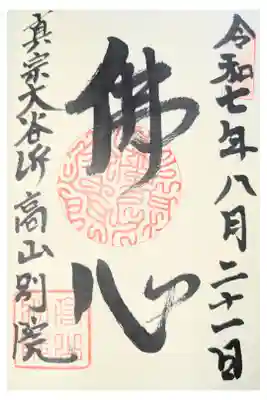 令和七年八月二十一日
佛心
真宗大谷派高山別院